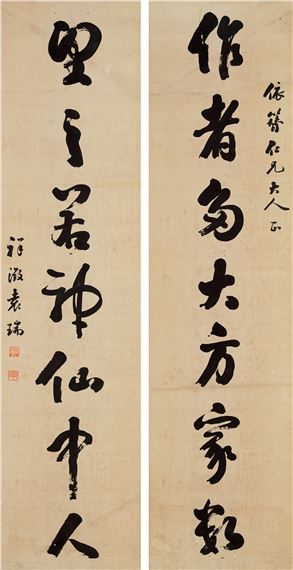 依簪仁兄大人正
作者為大方家數
望之若神仙中人
祥澂袁瑞